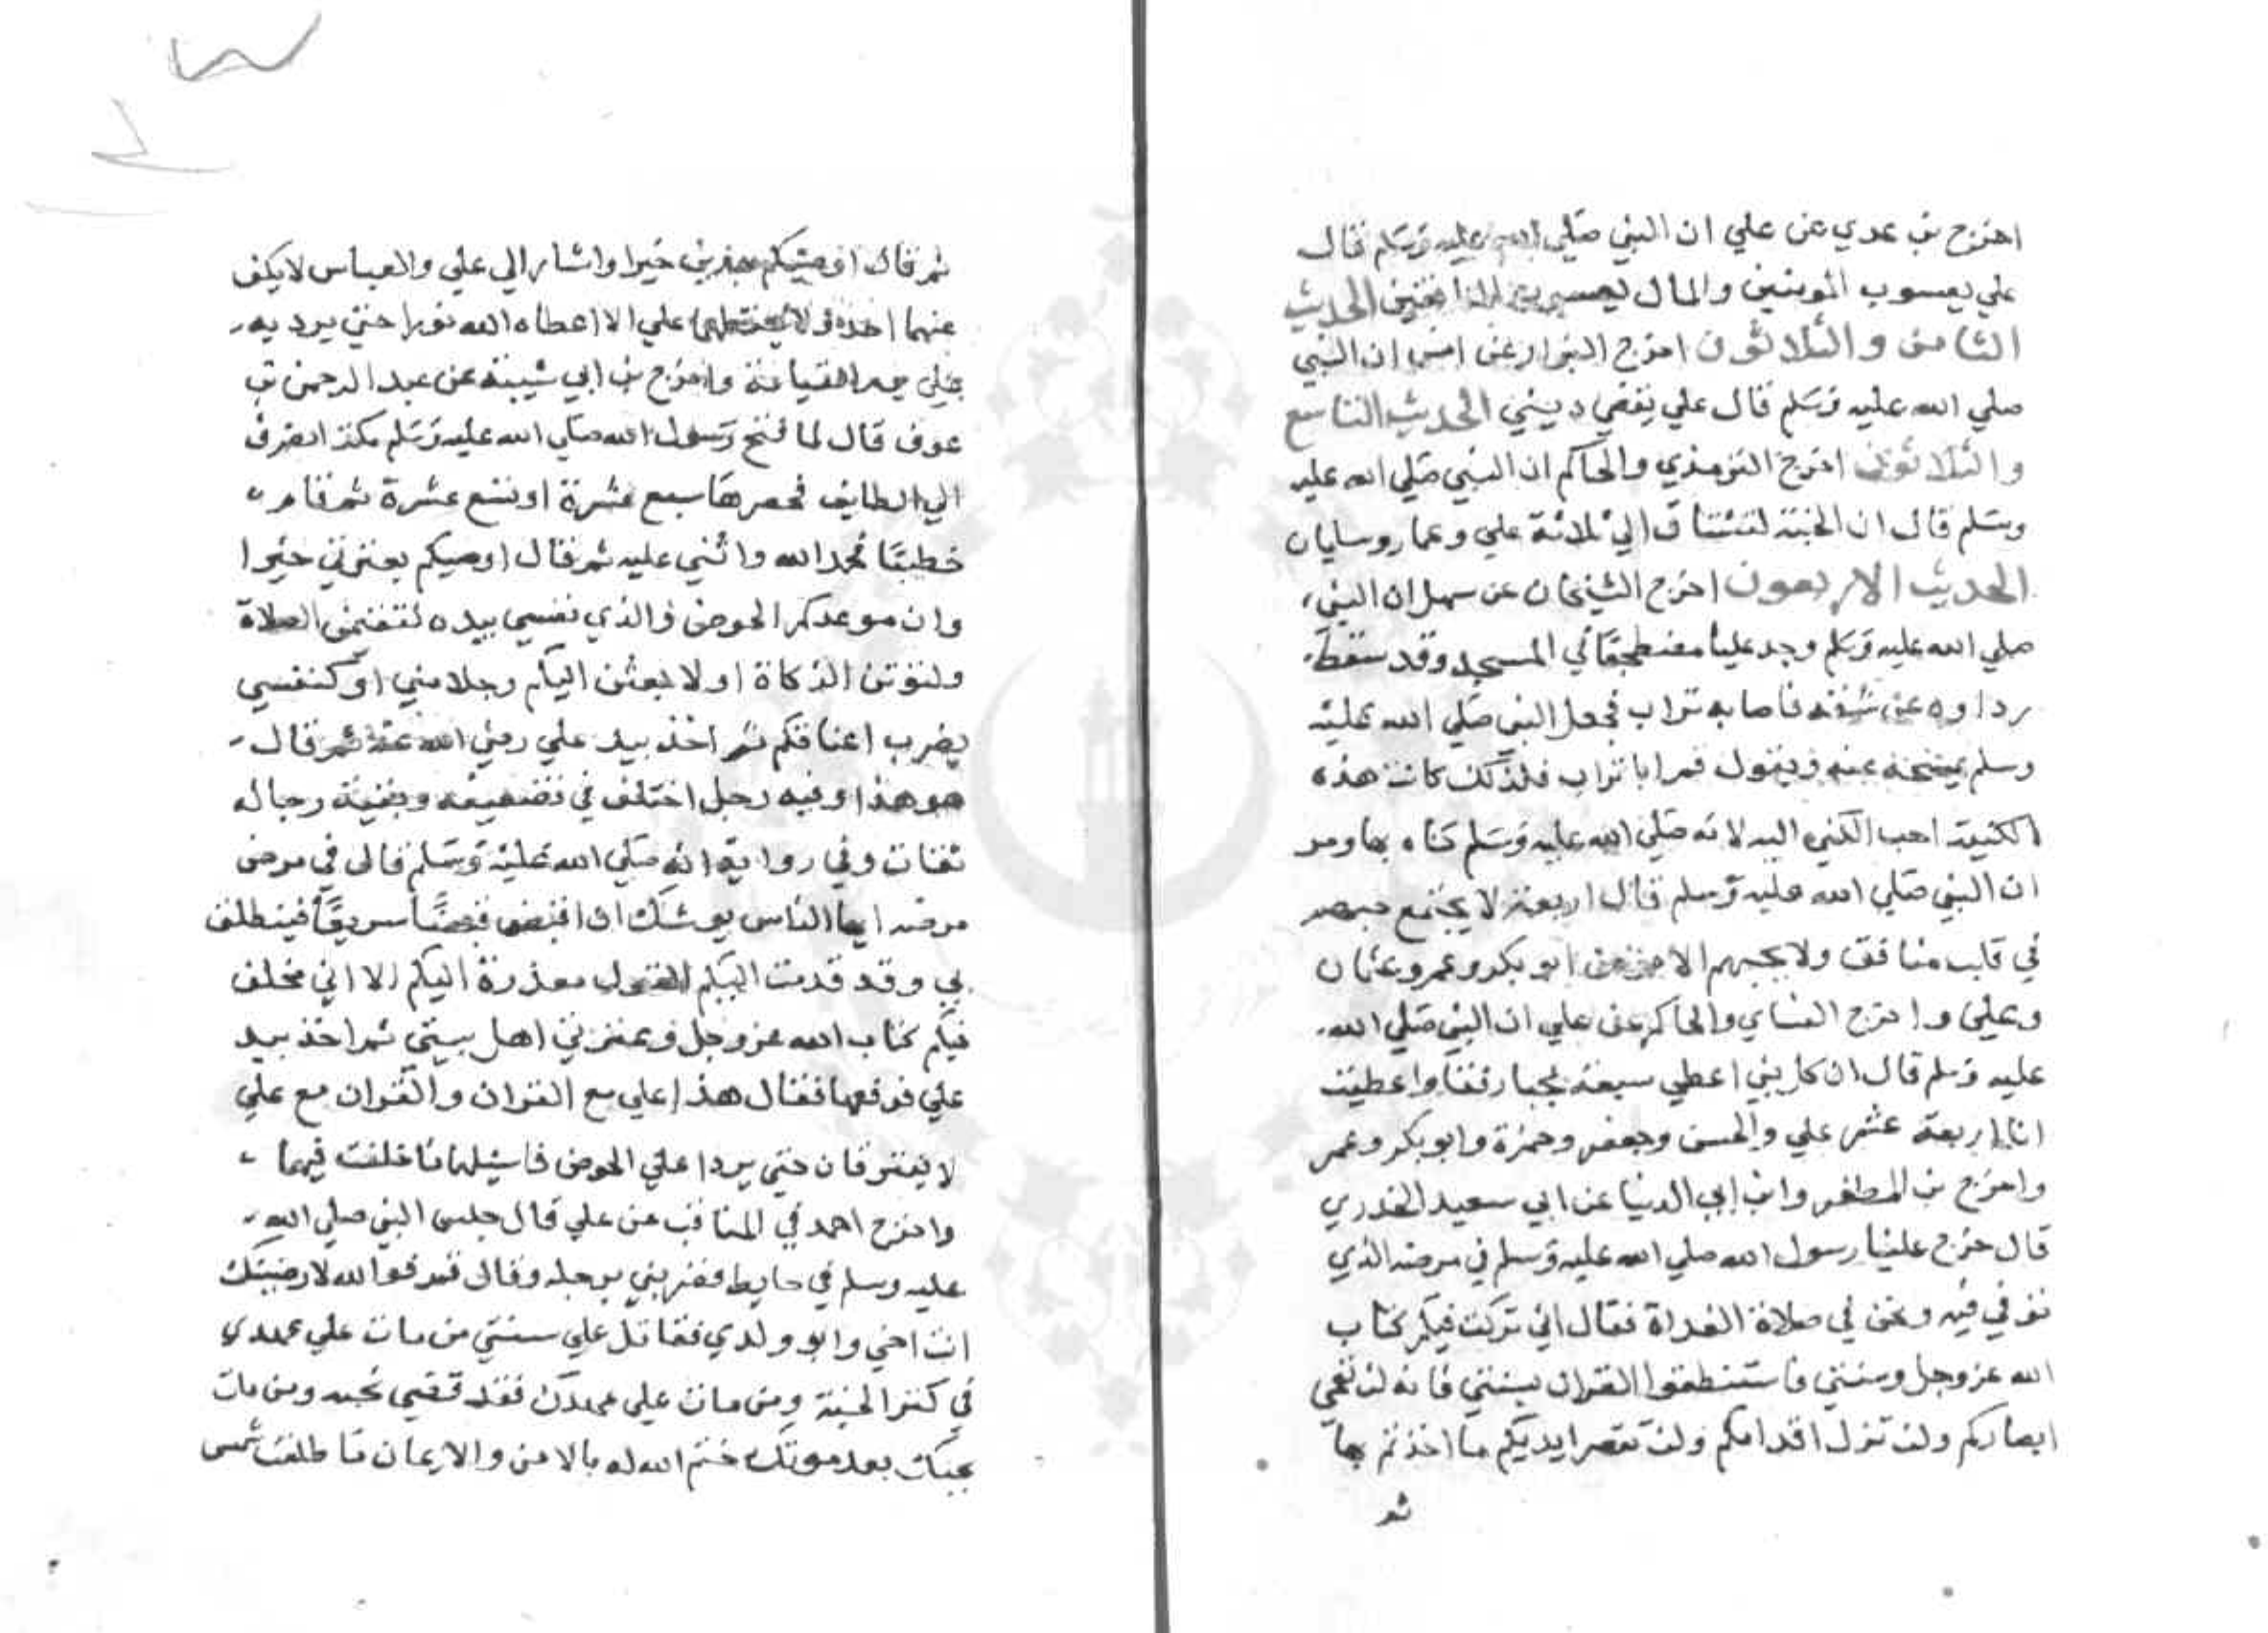 اخرج بن عدي عن علي ان النبي صلي الله عليه وسلم قال
علي يعسوب المومنين والمال يعسوب المنافقين الحديث
الثامن والثلاثون اخرج البزار عن انس ان النبي
صلي الله عليه وسلم قال علي يقضي ديني الحديث التاسع
والثلاثون اخرج الترمذي والحاكم ان النبي صلي الله عليه
وسلم قال ان الجنة لتشتاق الي ثلاثة علي وعمار وسلمان
الحديث الاربعون اخرج الشيخان عن سهل ان النبي
صلي الله عليه وسلم وجد عليا مضطجعا في المسجد وقد سقط
رداوه عن شقه فاصابه تراب فجعل النبي صلي الله عليه
وسلم يمسحه عنه ويقول قم ابا تراب فلذلك كانت هذه
الكنية احب الكني اليه لانه صلي الله عليه وسلم كناه بها ومر
ان النبي صلي الله عليه وسلم قال اربعة لا يجتمع حبهم
في قلب منافق ولا يحبهم الا مومن ابو بكر وعمر وعثمان
وعلي واخرج النساي والحاكم عن علي ان النبي صلي الله
عليه وسلم قال ان كل نبي اعطي سبعة نجبا رفقا واعطيت
انا اربعة عشر علي والحسن وجعفر وحمزة وابو بكر وعمر
واخرج بن المظفر وابن ابي الدنيا عن ابي سعيد الخدري
قال خرج علينا رسول الله صلي الله عليه وسلم في مرضه الذي
توفي فيه ونحن في صلاة الغداة فقال اني تركت فيكم كتاب
الله عز وجل وسنتي فاستنطقوا القران بسنتي فانه لن تعمي
ابصاركم ولن تزل اقدامكم ولن تقصر ايديكم ما اخذتم بها
ثم
ثم قال اوصيكم بهذين خيرا واشار الي علي والعباس لا يكف
عنهما احد ولا يحفظهما علي الا اعطاه الله نورا حتي يرد به
علي يوم القيامة واخرج بن ابي شيبة عن عبد الرحمن بن
عوف قال لما فتح رسول الله صلي الله عليه وسلم مكة انصرف
الي الطايف فحصرها سبع عشرة او تسع عشرة ثم قام
خطيبا فحمد الله واثني عليه ثم قال اوصيكم بعترتي خيرا
وان موعدكم الحوض والذي نفسي بيده لتقيمن الصلاة
ولتوتن الزكاة او لابعثن اليكم رجلا مني او كنفسي
يضرب اعناقكم ثم اخذ بيد علي رضي الله عنه ثم قال
هو هذا وفيه رجل اختلف في تضعيفه وبقية رجاله
ثقات وفي رواية انه صلي الله عليه وسلم قال في مرض
مرضه ايها الناس يوشك ان اقبض قبضا سريعا فينطلق
بي وقد قدمت اليكم القول معذرة اليكم الا اني مخلف
فيكم كتاب الله عز وجل وعترتي اهل بيتي ثم اخذ بيد
علي فرفعها فقال هذا علي مع القران والقران مع علي
لا يفترقان حتي يردا علي الحوض فاسئلهما ما خلفت فيهما
واخرج احمد في المناقب عن علي قال جلس النبي صلي الله
عليه وسلم في حايط فضربني برجله وقال قم فوالله لارضينك
انت اخي وابو ولدي فقاتل علي سنتي من مات علي عهدي
في كنز الجنة ومن مات علي عهدك فقد قضي نحبه ومن مات
بحبك بعد موتك ختم الله له بالامن والايمان ما طلعت شمس